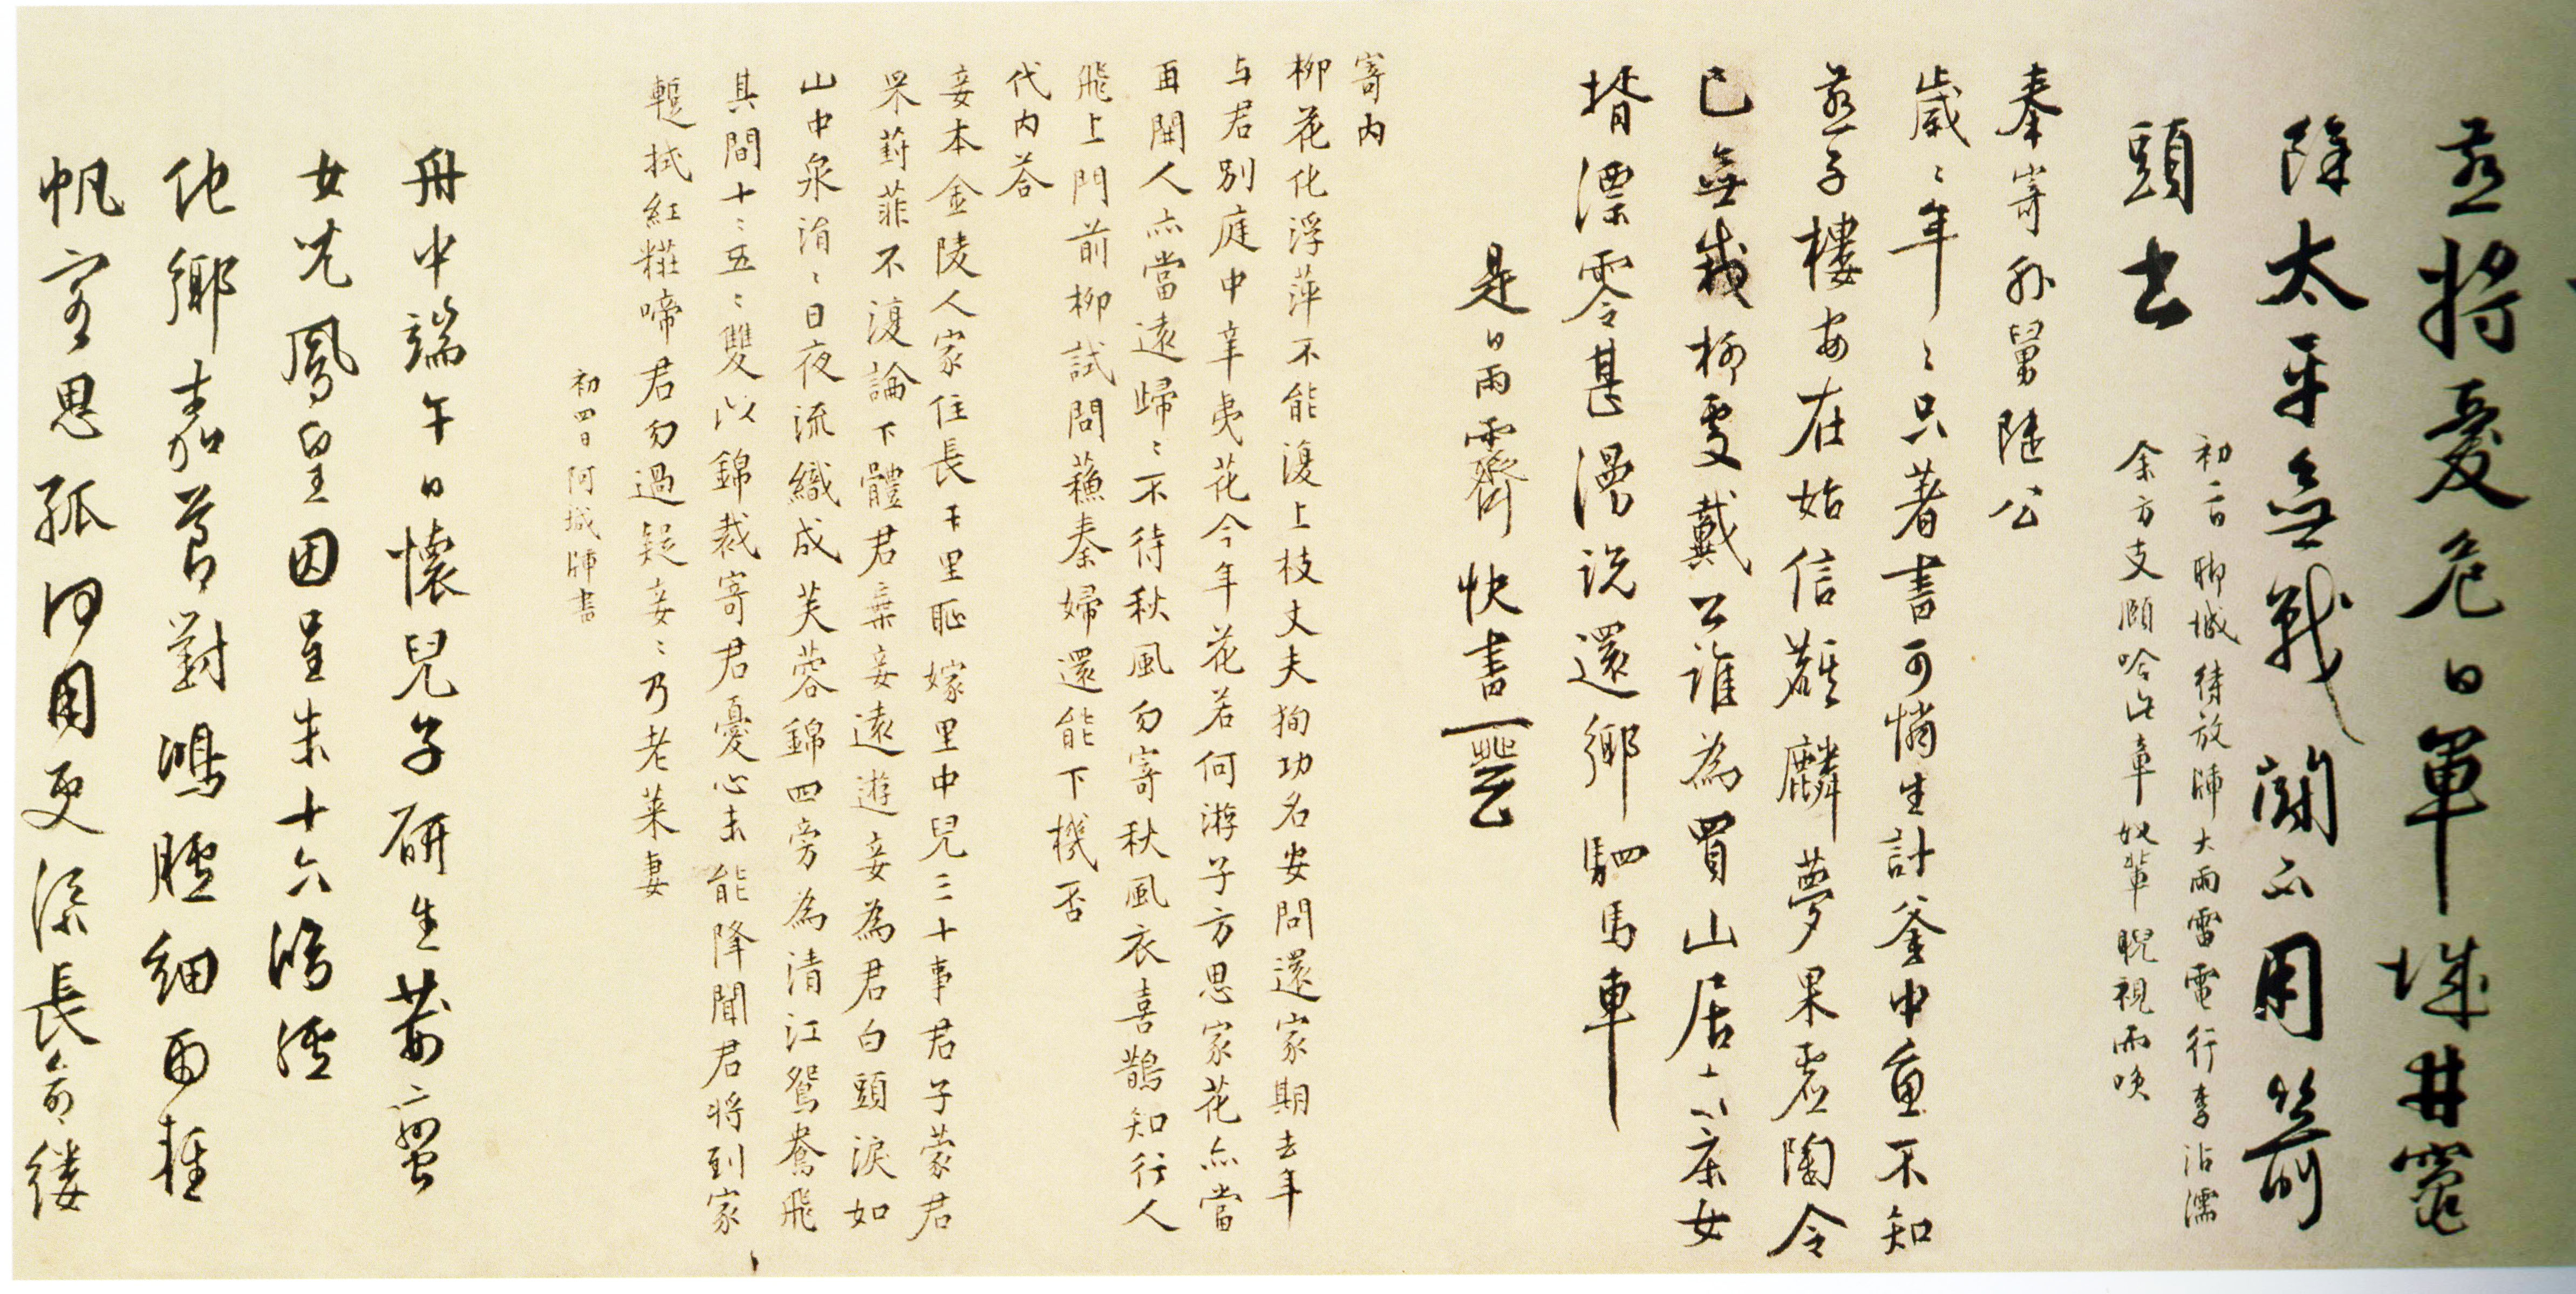 燕將憂危日軍城井竈
除太平無戰鬪不用箭
頭書
初二日聊城待放牐大雨雷電行李沾濡
余方支頤吟此章奴輩睨視而唉
奉寄孫舅陸公
歲〻年〻只著書可憐生計釜中魚不知
燕子樓安在姑信麒麟夢果虛陶令
已無栽柳處戴公誰為買山居
漂零甚漫說還鄉駟馬車
是日雨霽快書一豐
寄內
柳花化浮萍不能復上枝丈夫狥功名安問還家期去年
与君別庭中辛夷花今年花若何游子方思家花亦當
再開人亦當遠歸〻不待秋風勿寄秋風衣喜鵲知行人
飛上門前柳試問蘇秦婦還能下機否
代內荅
妾本金陵人家住長干里恥嫁里中兒三十事君子蒙君
采葑菲不復論下體君棄妾遠遊妾為君白頭淚如
山中泉涓〻日夜流織成芙蓉錦四旁為清江鴛鴦飛
其間十〻五〻雙以錦裁寄君憂心未能降聞君將到家
輒拭紅粧啼君勿過疑妾〻乃老萊妻
初四日阿城牐書
舟中端午日懷兒子研生
女兒鳳皇因呈朱十六
他鄉嘉節對鴻臚細雨輕
帆客思孤何用更深長命縷